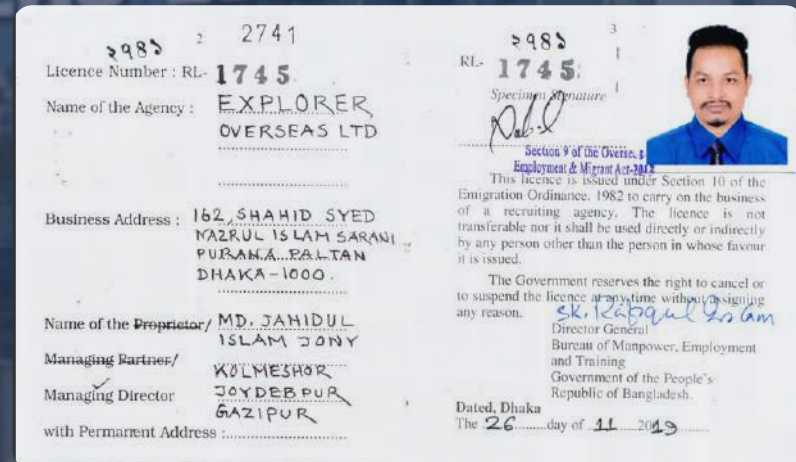 2 2741
২৭৪১
Licence Number : RL- 1745
Name of the Agency : EXPLORER
OVERSEAS LTD
Business Address : 162, SHAHID SYED
NAZRUL ISLAM SARANI
PURANA PALTAN
DHAKA-1000.
Name of the Proprietor/ MD. JAHIDUL
ISLAM JONY
Managing Partner/ KOLMESHOR
Managing Director JOYDEBPUR
GAZIPUR
with Permanent Address :
3
২৭৪১
RL- 1745
Specimen Signature
Section 9 of the Overse
Employment & Migrant Act-2013
This licence is issued under Section 10 of the
Emigration Ordinance, 1982 to carry on the business
of a recruiting agency. The licence is not
transferable nor it shall be used directly or indirectly
by any person other than the person in whose favour
it is issued.
The Government reserves the right to cancel or
to suspend the licence at any time without assigning
any reason. SK. Rafiqul Islam
Director General
Bureau of Manpower, Employment
and Training
Government of the People's
Republic of Bangladesh.
Dated, Dhaka
The 26 day of 11 2019